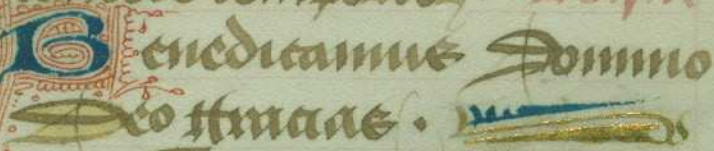 Benedicamus Domino
Deo gracias .